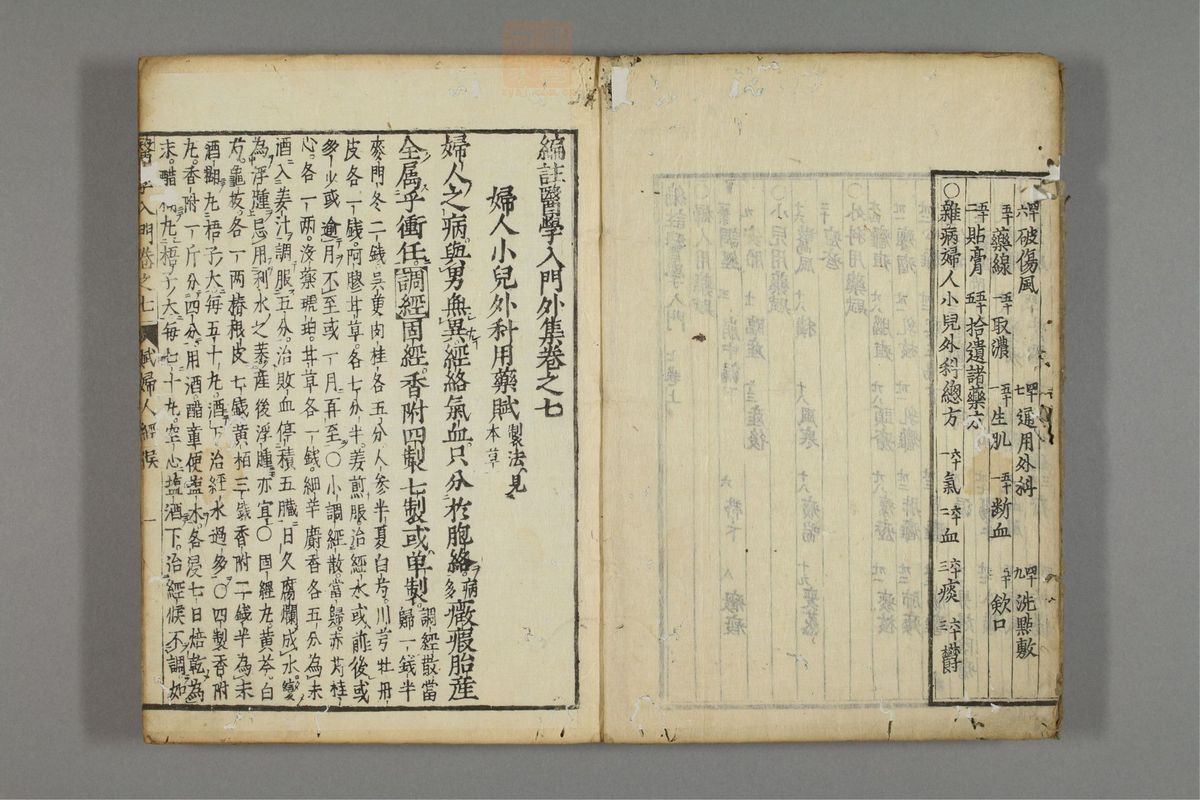 甲六破傷風　甲七通用外科　甲九洗點敷
藥線　五十取濃　五十一生肌　五十一断血　五十欽口
五十二貼膏　五十拾遺諸藥方
〇雜病婦人小兒外科總方　六十一氣　六十二血　六十三痰　六十三欝
編註醫學入門外集卷之七
婦人小兒外科用藥賦 製法見本草
婦人之病與男無異經絡氣血只分於胞絡病多癥瘕胎産
全属乎衝任調經固經香附四製七製或单製調經散當歸一銭半
麥門冬二銭吳茰肉桂各五分人參半夏白芍川芎牡丹
皮各一銭阿膠甘草各七分半姜煎服治經水或前後或
多少或逾月不至或一月再至〇小調經散當歸赤芍桂
心各一両没藥琥珀甘草各一銭細辛麝香各五分為末
酒入姜汁調服五分治敗血停積五臟日久腐爛成水變
為浮腫忌用利水之薬產後浮腫亦宜〇固經丸黄芩白
芍龜板各一両椿根皮七銭黄栢三銭香附二銭半為末
酒糊丸梧子大每五十丸酒下治經水過多〇四製香附
丸香附一斤分四分用酒醋童便盐水各浸七日焙乾為
末醋糊丸梧子大每七十丸空心塩酒下治經候不調如
醫學入門卷之七　賦婦人經候　一